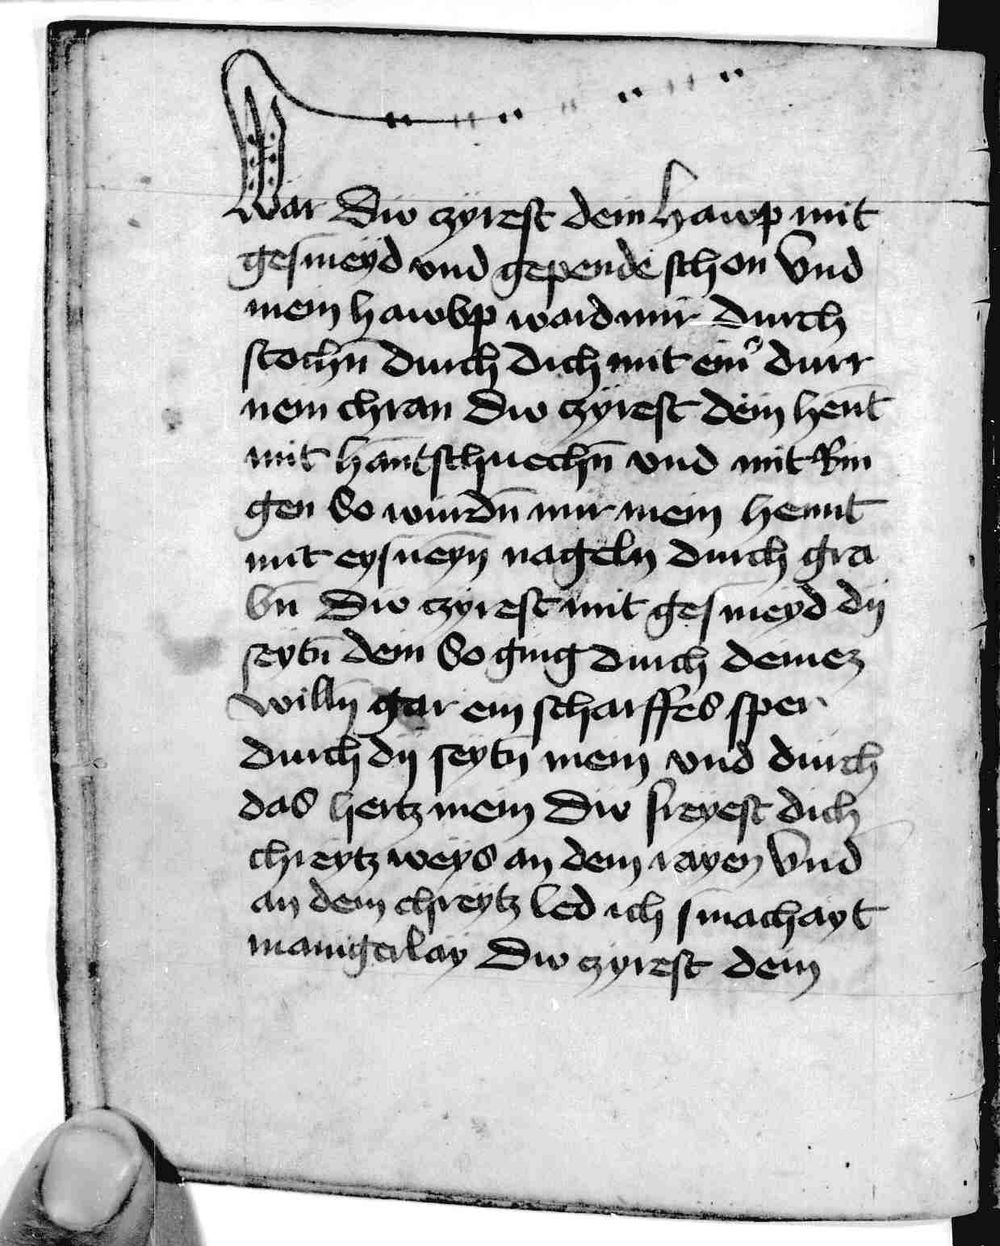 War Diw czyrest dein hawp mit
gesmeyd vnd gepende schon Vnd
mein hawbp ward mir durch
stochn̄ durch dich mit ein͛ durr
nein chran Diw czyrest dein hen̄t
mit han̄tschuechn̄ vnd mit Rin
gen So wurdn̄ mir mein hennt
mit eysneyn̄ nageln durch gra
bn̄ Diw czyrest mit gesmeyd dy
seytn̄ dein So ging durch deinez
willn̄ gar ein scharffes sper
durch dy seytn̄ mein vnd durch
das hertz mein Diw freyest dich
chreytz weys an dem rayen Vnd
an dem chreytz led ich smachayt
manigerlay Diw czyrest dein